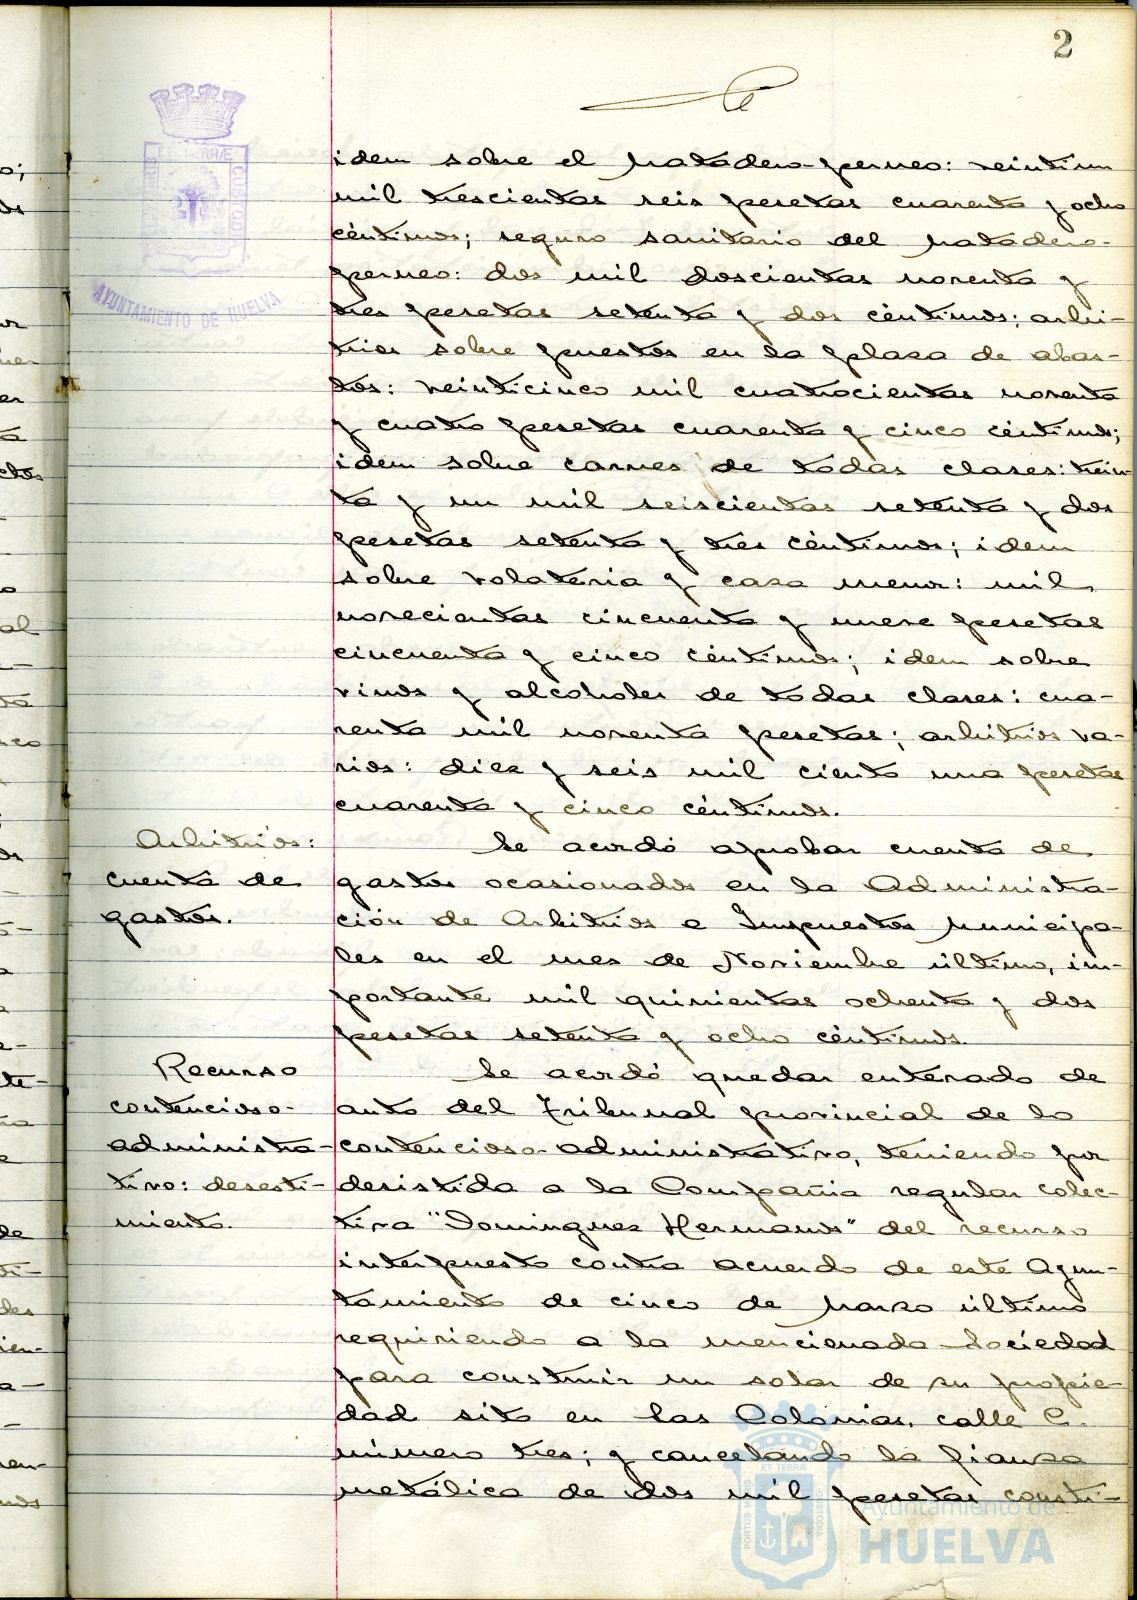 2
idem sobre el matadero-perneo: veintiun
mil trescientas seis pesetas cuarenta y ocho
céntimos; seguro sanitario del matadero-
perneo: dos mil doscientas noventa y
tres pesetas setenta y dos céntimos; arbi-
trios sobre puestos en la plaza de abas-
tos: veinticinco mil cuatrocientas noventa
y cuatro pesetas cuarenta y cinco céntimos;
idem sobre carnes de todas clases: trein-
ta y un mil seiscientas setenta y dos
pesetas setenta y tres céntimos; idem
sobre volateria y caza menor: mil
novecientas cincuenta y nueve pesetas
cincuenta y cinco céntimos; idem sobre
vinos y alcoholes de todas clases: cua-
renta mil noventa pesetas; arbitrios va-
rios: diez y seis mil ciento una pesetas
cuarenta y cinco céntimos.
Arbitrios:
cuenta de
gastos.
Se acordó aprobar cuenta de
gastos ocasionados en la Administra-
ción de Arbitrios e Impuestos Municipa-
les en el mes de Noviembre último, im-
portante mil quinientas ochenta y dos
pesetas setenta y ocho céntimos.
Recurso
contencioso-
administra-
tivo: desesti-
miento.
Se acordó quedar enterado de
auto del Tribunal provincial de lo
contencioso-administrativo, teniendo por
desistida a la Compañia regular colec-
tiva "Domingues Hermanos" del recurso
interpuesto contra acuerdo de este Ayun-
tamiento de cinco de Marzo último
requiriendo a la mencionada Sociedad
para construir un solar de su propie-
dad sito en las Colonias, calle C.
número tres; y cancelando la fianza
metálica de dos mil pesetas consti-
ET TERRÆ
AYUNTAMIENTO DE HUELVA
PORTUS MARIS ET TERRÆ CUSTODIA
Ayuntamiento de
HUELVA